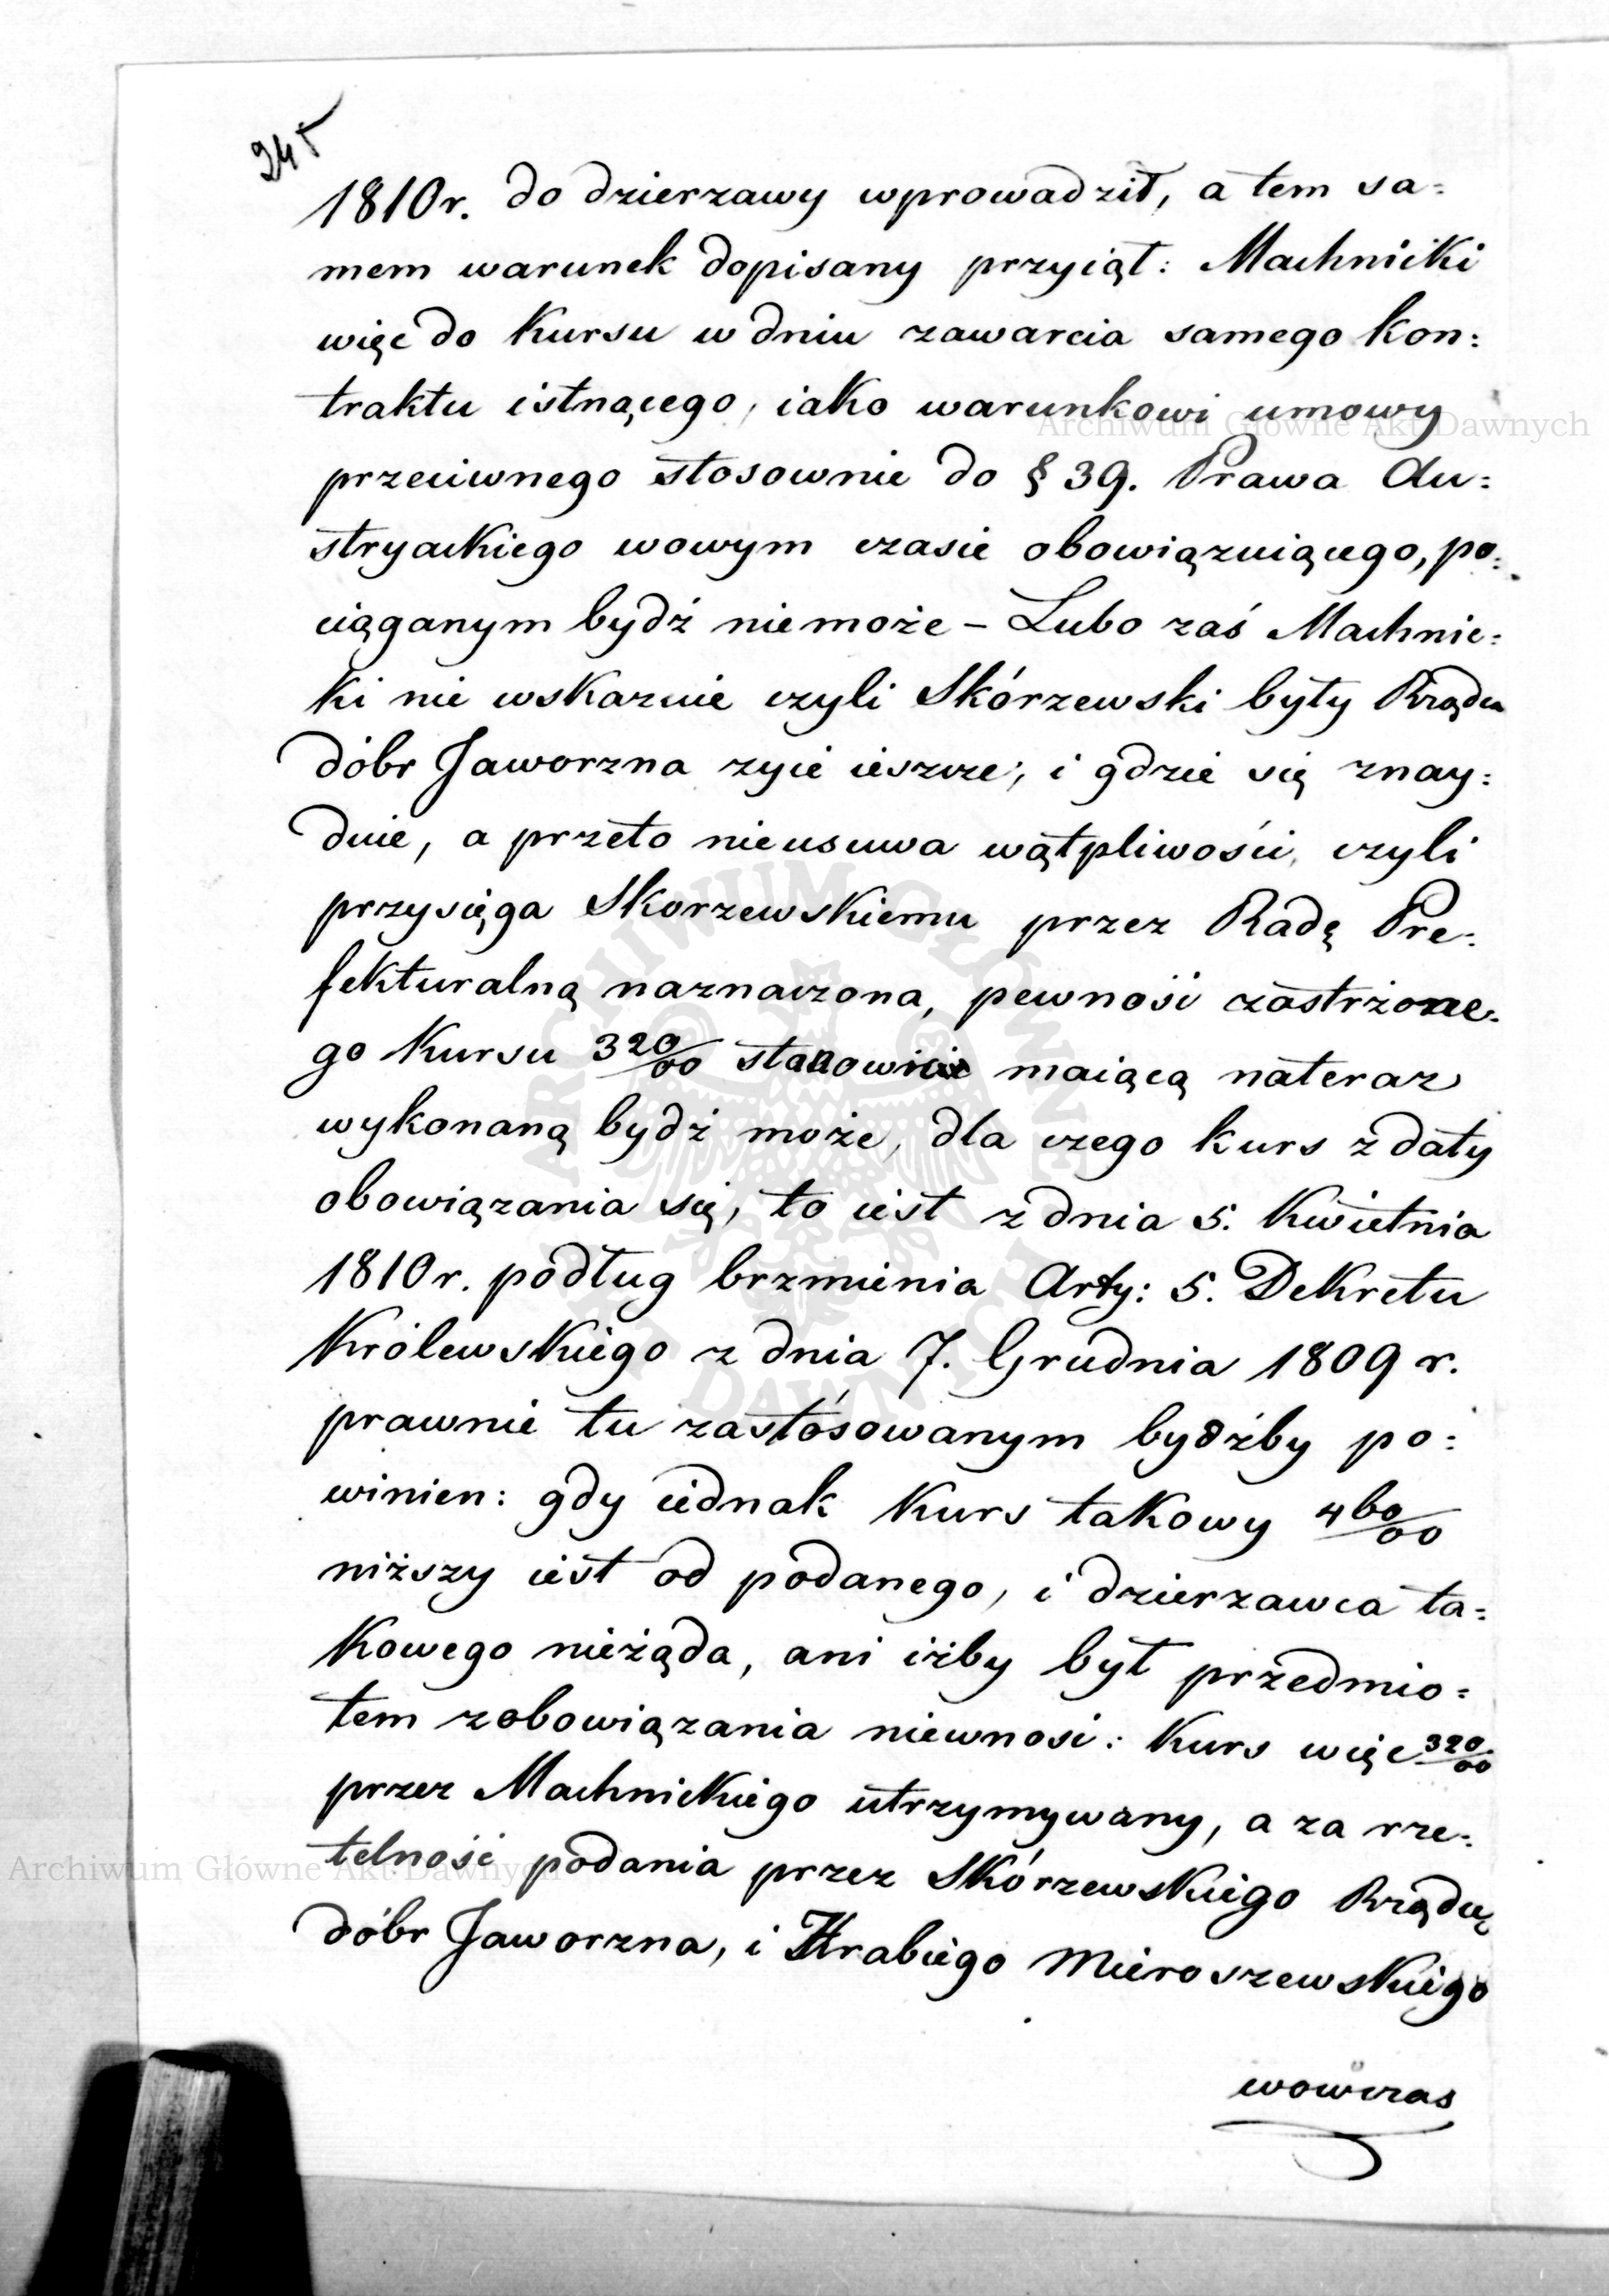 245
1810r. do dzierzawy wprowadził, a tem sa=
mem warunek dopisany przyiął: Machnicki
więc do Kursu w dniu zawarcia samego kon=
traktu istnącego, iako warunkowi umowy
przeciwnego stosownie do § 39. Prawa Au=
stryackiego wowym czasie obowiązuiącego, po=
ciąganym bydź niemoże – Lubo zaś Machnic=
ki nie wskazuie czyli Skórzewski były Rządca
dóbr Jaworzna zyie ieszcze, i gdzie się znay=
duie, a przeto nieusuwa wątpliwości, czyli
przysięga Skorzewskiemu przez Radę Pre=
fekturalną naznaczona, pewność zastrżone=
go Kursu 320/00 stanowić maiącą nateraz
wykonaną bydź może, dla czego kurs z daty
obowiązania się, to iest z dnia 5. Kwietnia
1810r. podług brzmienia Arty: 5. Dekretu
Królewskiego z dnia 7. Grudnia 1809 r.
prawnie tu zastósowanym bydźby po=
winien: gdy iednak Kurs takowy 460/00
niższy iest od podanego, i dzierzawca ta=
kowego nieżąda, ani iżby był przedmio=
tem zobowiązania niewnosi: Kurs więc 320/00
przez Machnickiego utrzymywany, a za rze=
telność podania przez Skórzewskiego Rządcę
dóbr Jaworzna, i Hrabiego Mieroszewskiego
wowczas
Archiwum Główne Akt Dawnych
Archiwum Główne Akt Dawnych
ARCHIWUM GŁÓWNE AKT DAWNYCH